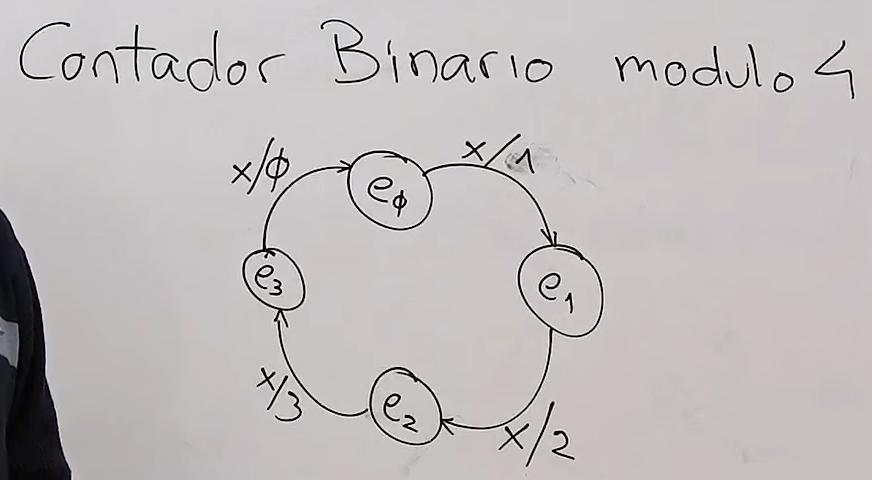 Contador Binario modulo 4
x/ϕ
eϕ
x/1
e3
e1
x/3
e2
x/2